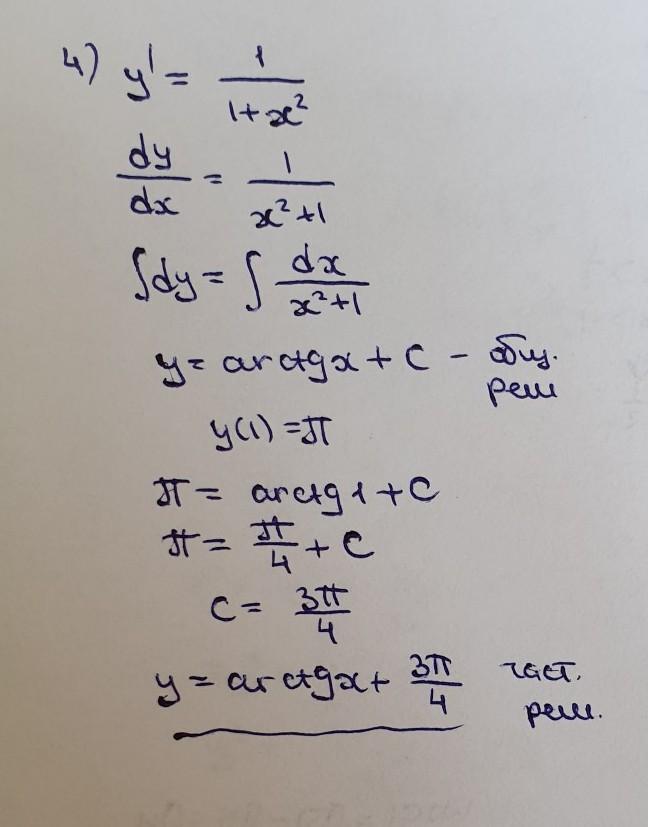 4) y' = 1/(1+x²)
dy/dx = 1/(x²+1)
∫dy = ∫ dx/(x²+1)
y = arctgx + C - общ. реш
y(1) = π
π = arctg 1 + C
π = π/4 + C
C = 3π/4
y = arctgx + 3π/4 част. реш.